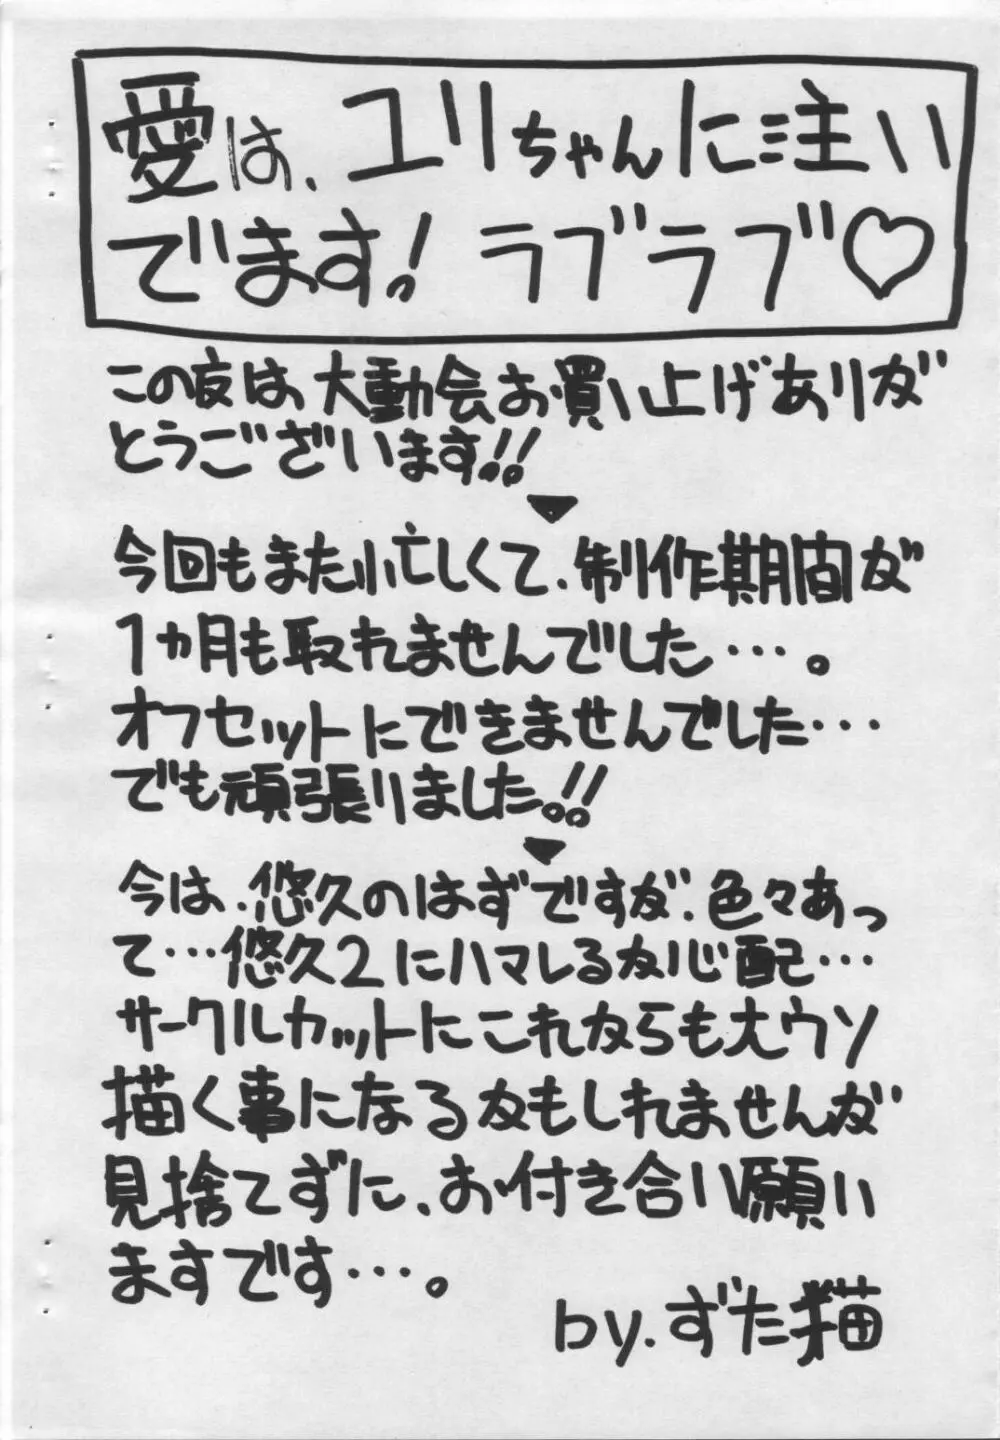 愛は、ユリちゃんに注い
でます! ラブラブ♡
この度は大動会お買い上げありが
とうございます!!
今回もまた忙しくて、制作期間が
1ヵ月も取れませんでした…。
オフセットにできませんでした…
でも頑張りました。!!
今は、悠久のはずですが、色々あっ
て…悠久2にハマレるか心配…
サークルカットにこれからも大ウソ
描く事になるかもしれませんが
見捨てずに、お付き合い願い
ますです…。
by.ずた猫